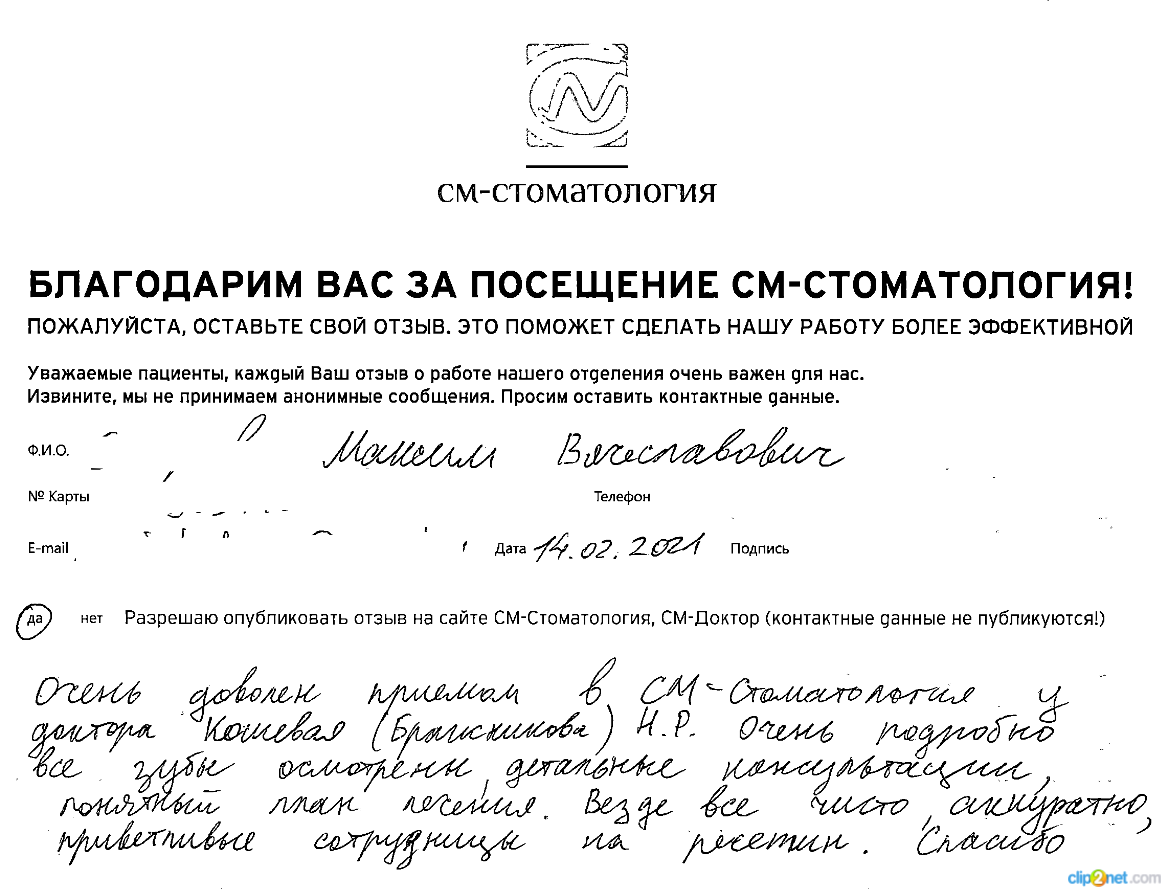 СМ-СТОМАТОЛОГИЯ
БЛАГОДАРИМ ВАС ЗА ПОСЕЩЕНИЕ СМ-СТОМАТОЛОГИЯ!
ПОЖАЛУЙСТА, ОСТАВЬТЕ СВОЙ ОТЗЫВ. ЭТО ПОМОЖЕТ СДЕЛАТЬ НАШУ РАБОТУ БОЛЕЕ ЭФФЕКТИВНОЙ
Уважаемые пациенты, каждый Ваш отзыв о работе нашего отделения очень важен для нас.
Извините, мы не принимаем анонимные сообщения. Просим оставить контактные данные.
Ф.И.О. Максим Вячеславович
№ Карты Телефон
E-mail Дата 14.02.2021 Подпись
да нет Разрешаю опубликовать отзыв на сайте СМ-Стоматология, СМ-Доктор (контактные данные не публикуются!)
Очень доволен приемом в СМ-Стоматология у
доктора Кошевая (Брызжникова) Н.Р. Очень подробно
все зубы осмотрены, детальные консультации,
понятный план лечения. Везде все чисто, аккуратно,
приветливые сотрудницы на ресепшн. Спасибо
clip2net.com